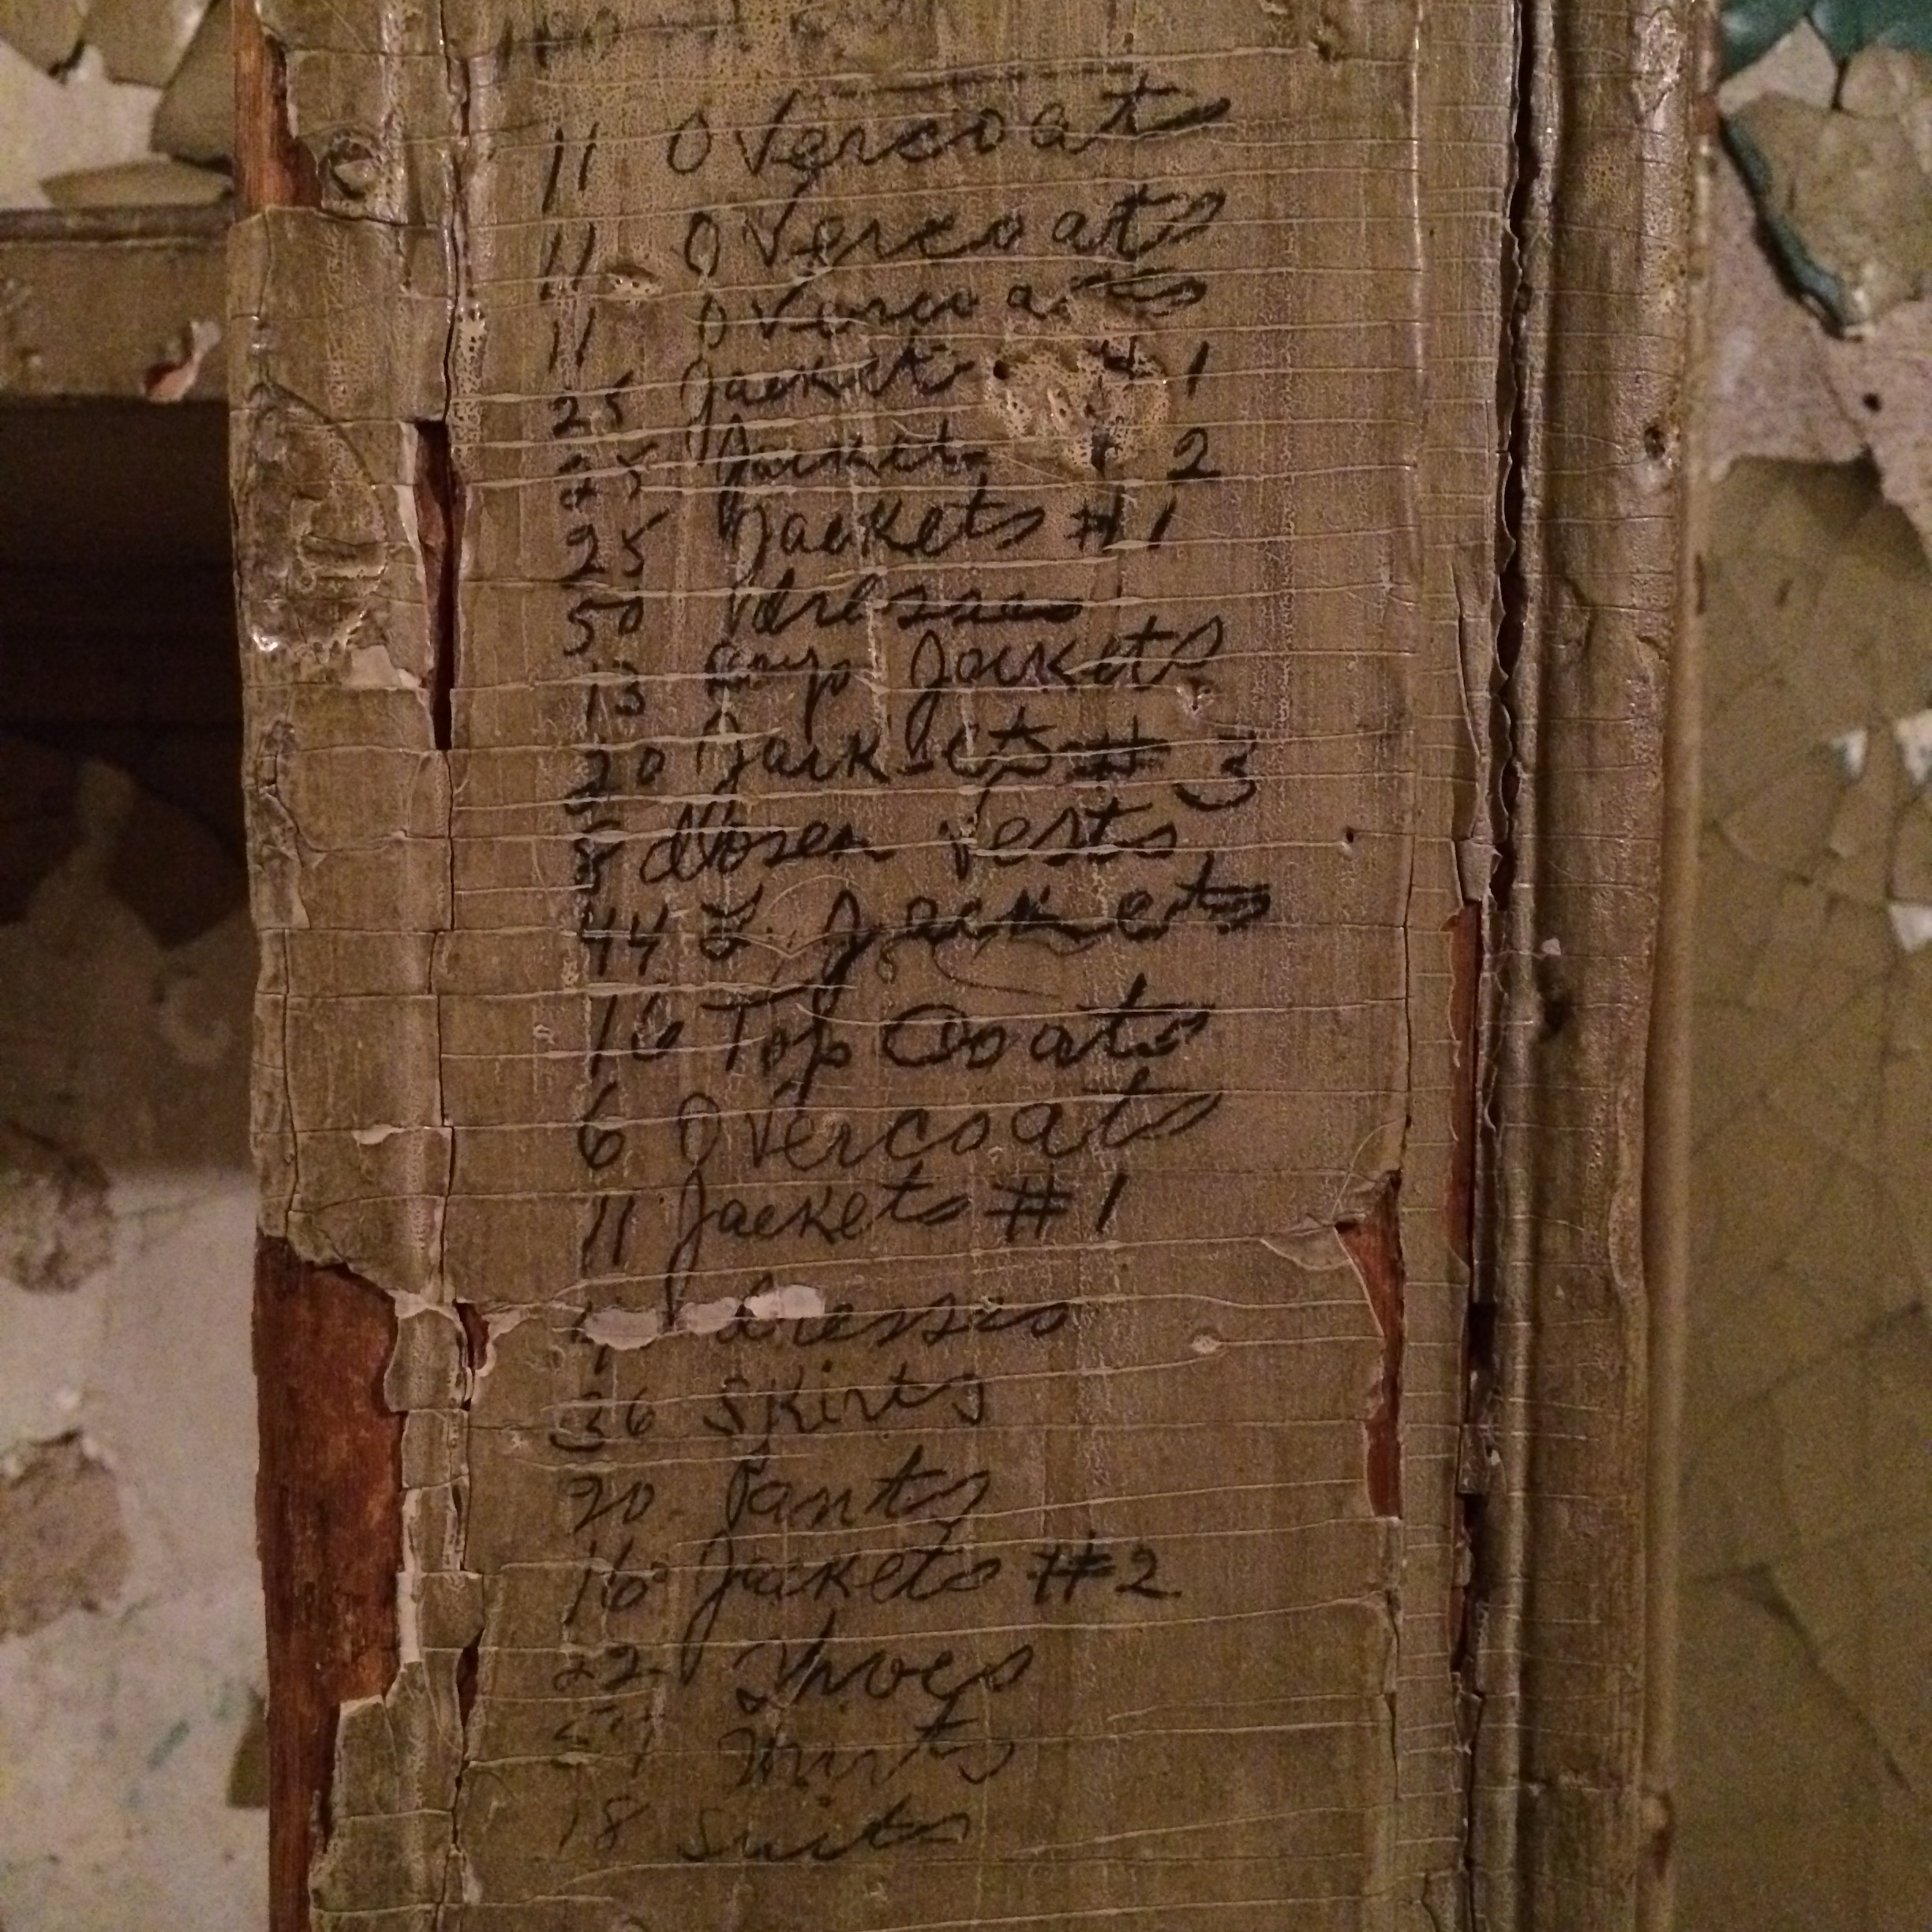 11 Overcoats
11 Overcoats
11 Overcoats
25 Jackets # 1
25 Jackets # 2
25 Jackets # 1
50 dresses
13 Boys Jackets
20 Jackets # 3
8 dozen Vests
44 Jackets
16 Top Coats
6 Overcoats
11 Jackets # 1
dresses
36 Skirts
20 Pants
16 Jackets # 2
22 Shoes
Shirts
18 Suits